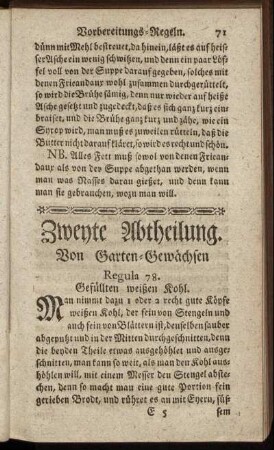 Vorbereitungs-Regeln. 71
dünn mit Mehl bestreuet, da hinein, läßt es auf heise
ser Asche ein wenig schwitzen, und denn ein paar Löf-
fel voll von der Suppe darauf gegeben, solches mit
denen Fricandaux wohl zusammen durchgerüttelt,
so wird die Brühe sämig, denn nur wieder auf heiße
Asche gesetzt und zugedeckt, daß es sich ganz kurz ein-
braiset, und die Brühe ganz kurz und zähe, wie ein
Syrop wird, man muß es zuweilen rütteln, daß die
Butter nicht darauf kläret, so wird es recht und schön.
NB. Alles Fett muß sowol von denen Frican-
daux als von der Suppe abgethan werden, wenn
man was Nasses daran gießet, und denn kann
man sie gebrauchen, wozu man will.
Zweyte Abtheilung.
Von Garten-Gewächsen
Regula 78.
Gefüllten weißen Kohl.
Man nimmt dazu 1 oder 2 recht gute Köpfe
weißen Kohl, der fein von Stengeln und
auch fein von Blättern ist, denselben sauber
abgeputzt und in der Mitten durchgeschnitten, denn
die beyden Theile etwas ausgehöhlet und ausge-
schnitten, man kann so weit, als man den Kohl aus-
höhlen will, mit einem Messer den Stengel abste-
chen, denn so macht man eine gute Portion fein
gerieben Brodt, und rühret es an mit Eyern, süß
E 5 sem